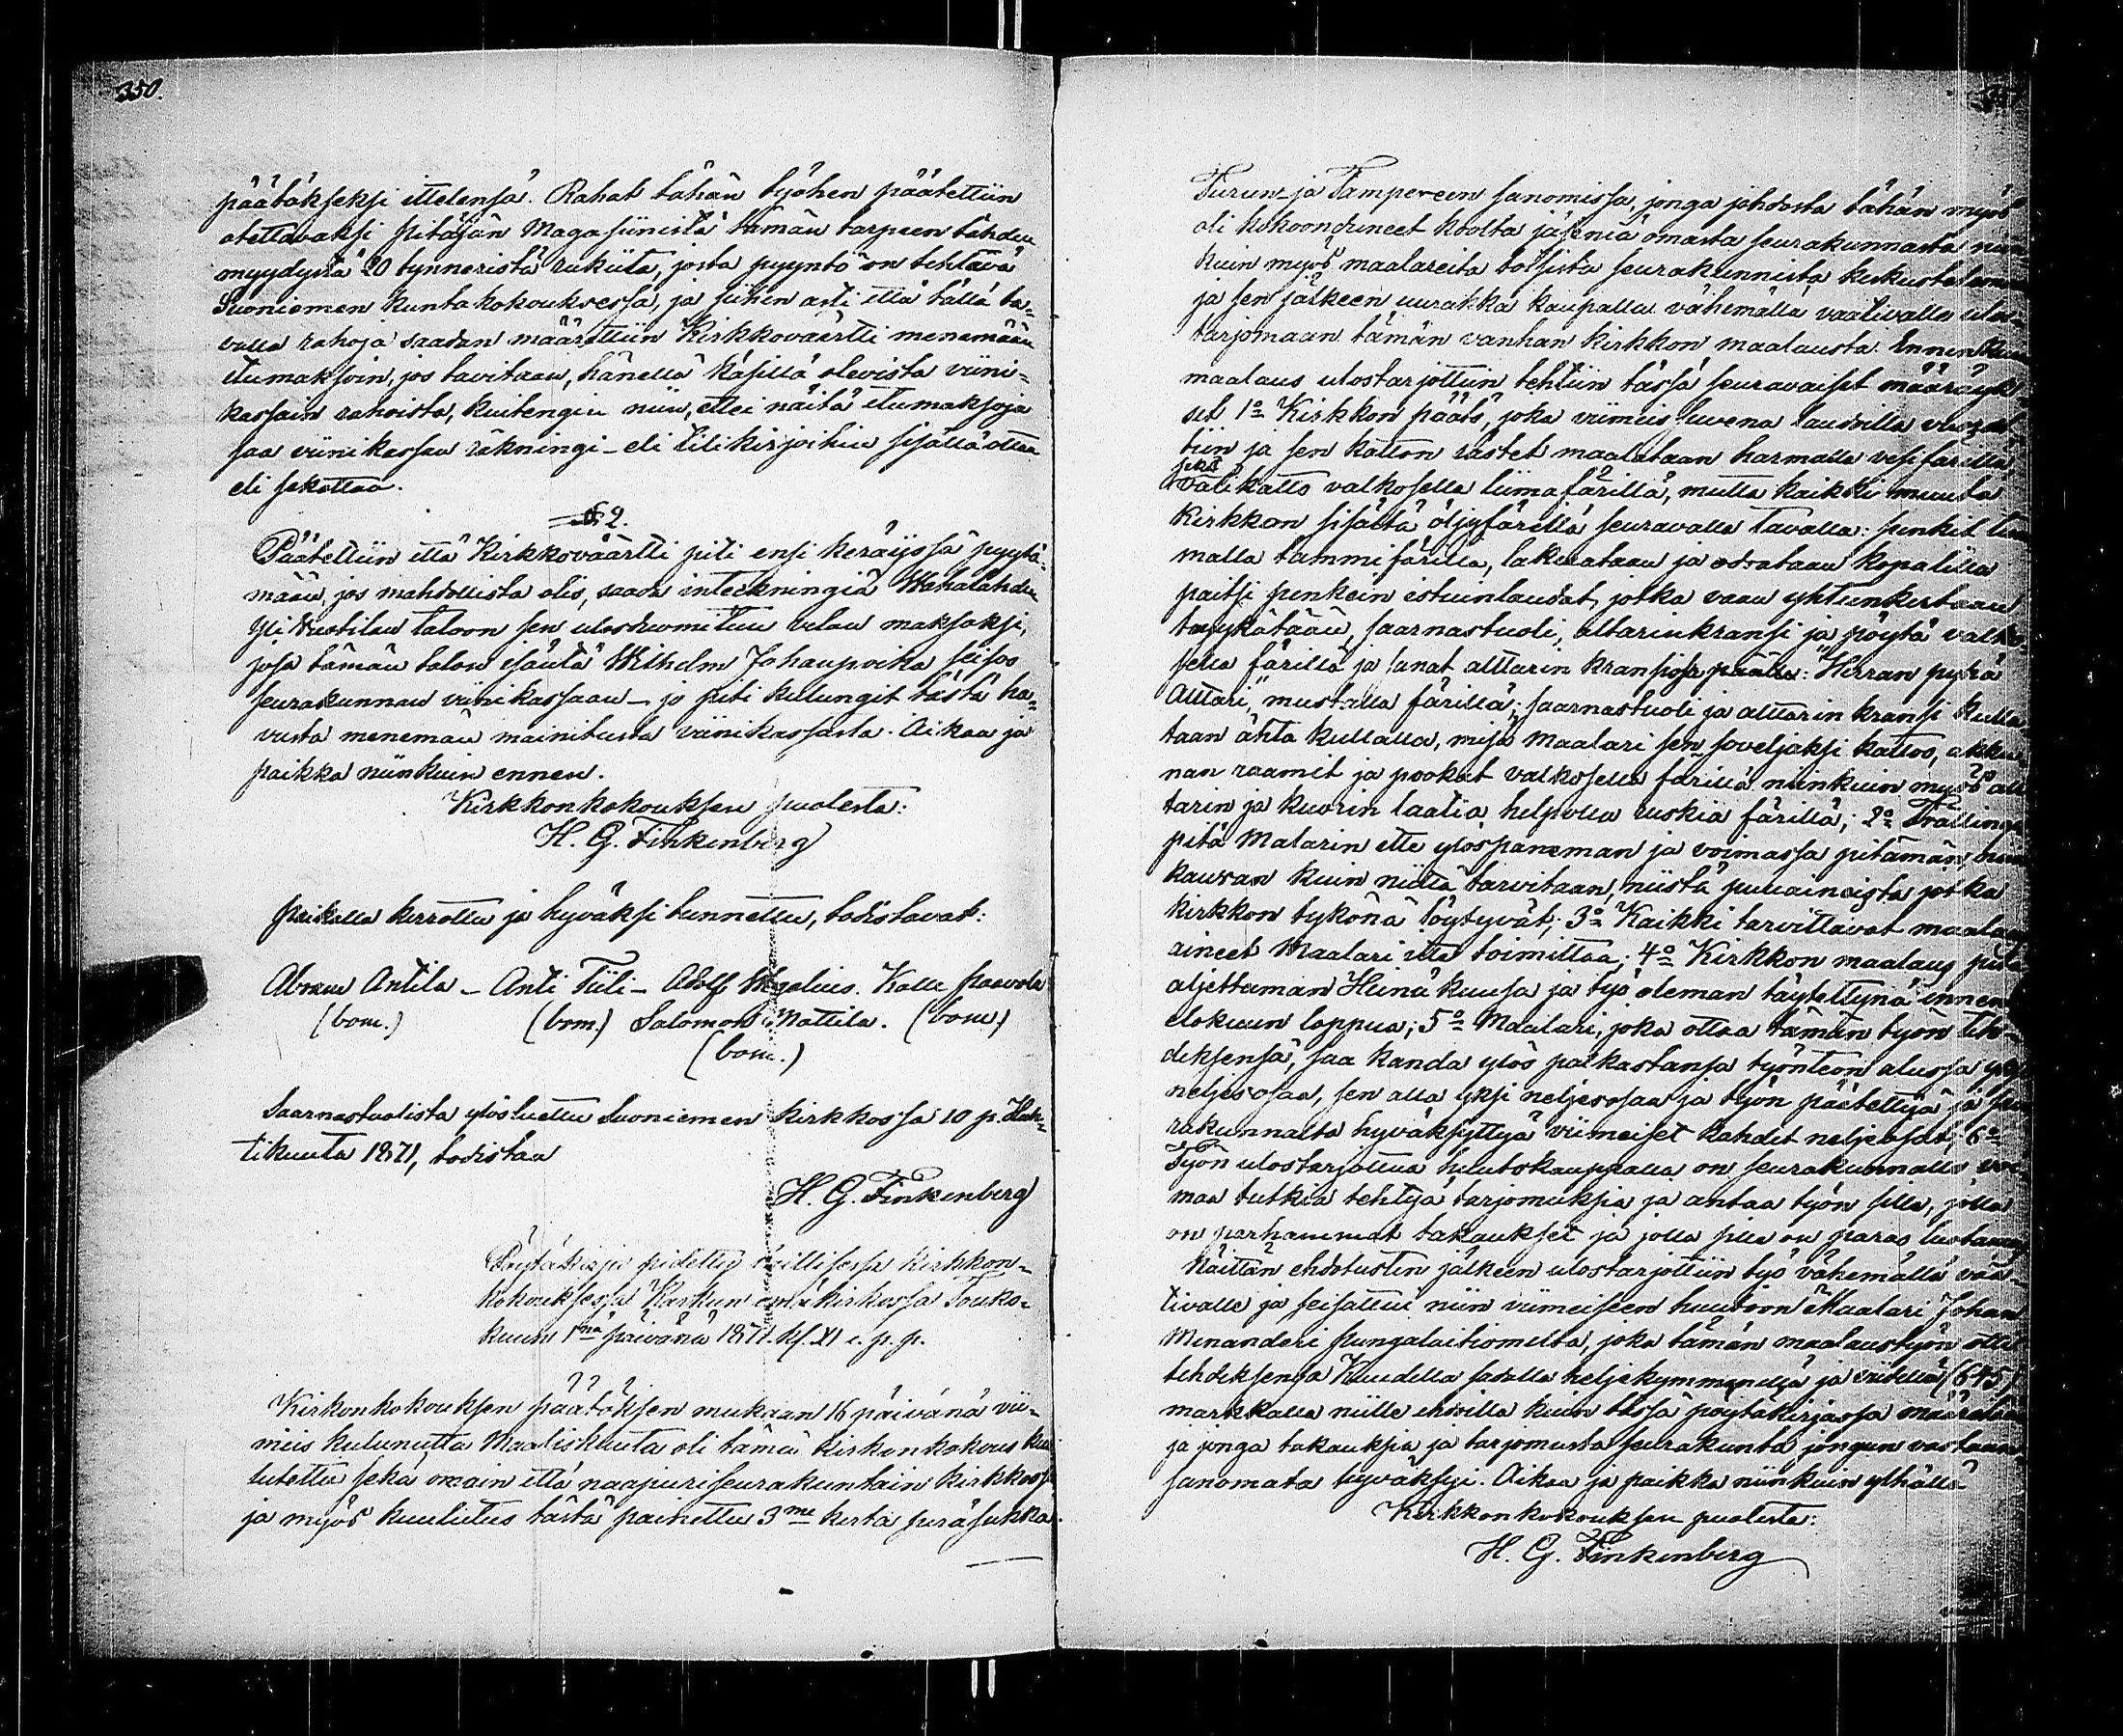 350.
päätökseksi ittelensä. Rahat tähän työhön päätettiin
otettavaksi pitäjän Magasiinista tämän tarpeen tähden
myydystä 20 tynneristä rukiita, josta pyyntö on tehtävä
Suoniemen kuntakokouksessa, ja siihen asti että tällä ta=
valla rahoja saadan määrättiin Kirkkoväärtti menemään
etumaksoin, jos tavitaan, hänellä käsillä olevista viini=
kassain rahoista, kuitengin niin, ettei näitä etumaksoja
saa viinikassan räkningi- eli tilikirjoihin sisällä ottaa
eli sekottaa.
§ 2.
Päätettiin että Kirkkoväärtti piti ensi keräyssä pyytä=
mään, jos mahdollista olis, saada inteckningiä Wahalahden
Yli talon sen ulostuomitun velan maksoksi,
josa tämän talon isäntä Wilhelm Johanpoika seisoo
seurakunnan viinikassaan – ja piti kulungit tästä ha=
vusta menemän mainitusta viinikassasta. Aikaa ja
paikka niinkuin ennen.
Kirkkonkokouksen puolesta:
H. G. Finkenberg
paikalla kerrottu ja hyväksi tunnettu, todistavat:
Abram Antila – Anti Tiili – Adolf . Kalle Paavola
(bom.) (bom.) Salomon Mattila. (bom.)
(bom.)
Saarnastuolista ylösluettu Suoniemen kirkkossa 10 p. Huh=
tikuuta 1871, todistaa
H. G. Finkenberg
Pöytäkirja pidetty laillisessa kirkkon=
kokouksessa Karkun emäkirkossa Touko=
kuun 1nä päivänä 1871. kl. XI e. p. p.
Kirkonkokouksen päätöksen mukaan 16 päivänä vii=
meis kulunutta Maaliskuuta oli tämä kirkonkokous kuu
lutettu sekä omain että naapuriseurakuntain kirkkossa
ja myös kuulutus tästä painettu 3me kerta peräsukka
Turun- ja Tampereen sanomissa, jonga johdosta tähän myös
oli kokoonduneet koolta jäseniä omasta seurakunnasta niin
kuin myös maalareita toisista seurakunnista keskustelemaan
ja sen jälkeen uurakka kaupalla vähemällä vaativalle ulos=
tarjomaan tämän vanhan kirkkon maalausta. Ennen kun
maalaus ulostarjottiin tehtiin tässä seuravaiset määräyk=
set 1o Kirkkon pääts, joka viimeis suvena laudoilla vuorat
tiin ja sen katton rästet maalataan harmalla vesifärillä,
sekä välikatto valkosella liimafärillä, mutta kaikki muuta
Kirkkon sisältä öljyfärillä seuravalla tavalla: penkit tum
malla tammifärillä, lakerataan ja odrataan kopalilla
paitsi penkein istuinlaudat, jotka vaan yhteenkertaan
tarykätään, saarnastuoli, altarinkransi ja pöytä valko
sella färillä ja sanat alttarin kransissa päällä: "Herran pyhä
Alttari," mustalla färillä; saarnastuoli ja alttarin kransi kulla
taan ähta kullalla, misä Maalari sen soveljaksi kattoo, akku
nan raamit ja pookat valkosella färillä niinkuin myös alt
tarin ja kuorin laatia helpolla ruskia färillä; 2o Trällingi
pitä Malarin itte ylöspaneman ja voimassa pitämän, niin
kauvan kuin niitä tarvitaan, niistä puuaineista jotka
kirkkon tykönä löytyvät; 3o Kaikki tarvittavat maalaus
aineet Maalari itte toimittaa; 4o Kirkkon maalaus pitä
aljettaman Heinä kuusa ja työ oleman täytettynä ennen
elokuun loppua; 5o Maalari, joka ottaa tämän työn teh=
däksensä, saa kanda ylös palkastansa työnteon alussa yksi
neljesosaa, sen alla yksi neljesosaa ja työn päätettyä ja seu
rakunnalta hyväksyttyä viimeiset kahdet neljeosat; 6o
Työn ulostarjottua huutokaupalla on seurakunnalla voi
maa tutkia tehtyjä tarjomuksia ja antaa työn sille, jolla
on parhammat takaukset ja jolla sille on paras luotamus
Näitten ehdotusten jälkeen ulostarjottiin työ vähemällä vaa
tivalle ja seisattui niin viimeiseen huutoon Maalari Johan
Menanderi Pungalaitiomelta, joka tämän maalaustyön otti
tehdäksensä Kuudella sadalla neljäkymmenellä ja viidellä (645)
markkalla niille ehdoilla kuin tässä pöytäkirjassa määrätään
ja jonga takauksia ja tarjomusta seurakunta jongun vastaan
sanomata hyväksyi. Aikaa ja paikka niinkuin ylhällä
Kirkkonkokouksen puolesta:
H. G. Finkenberg